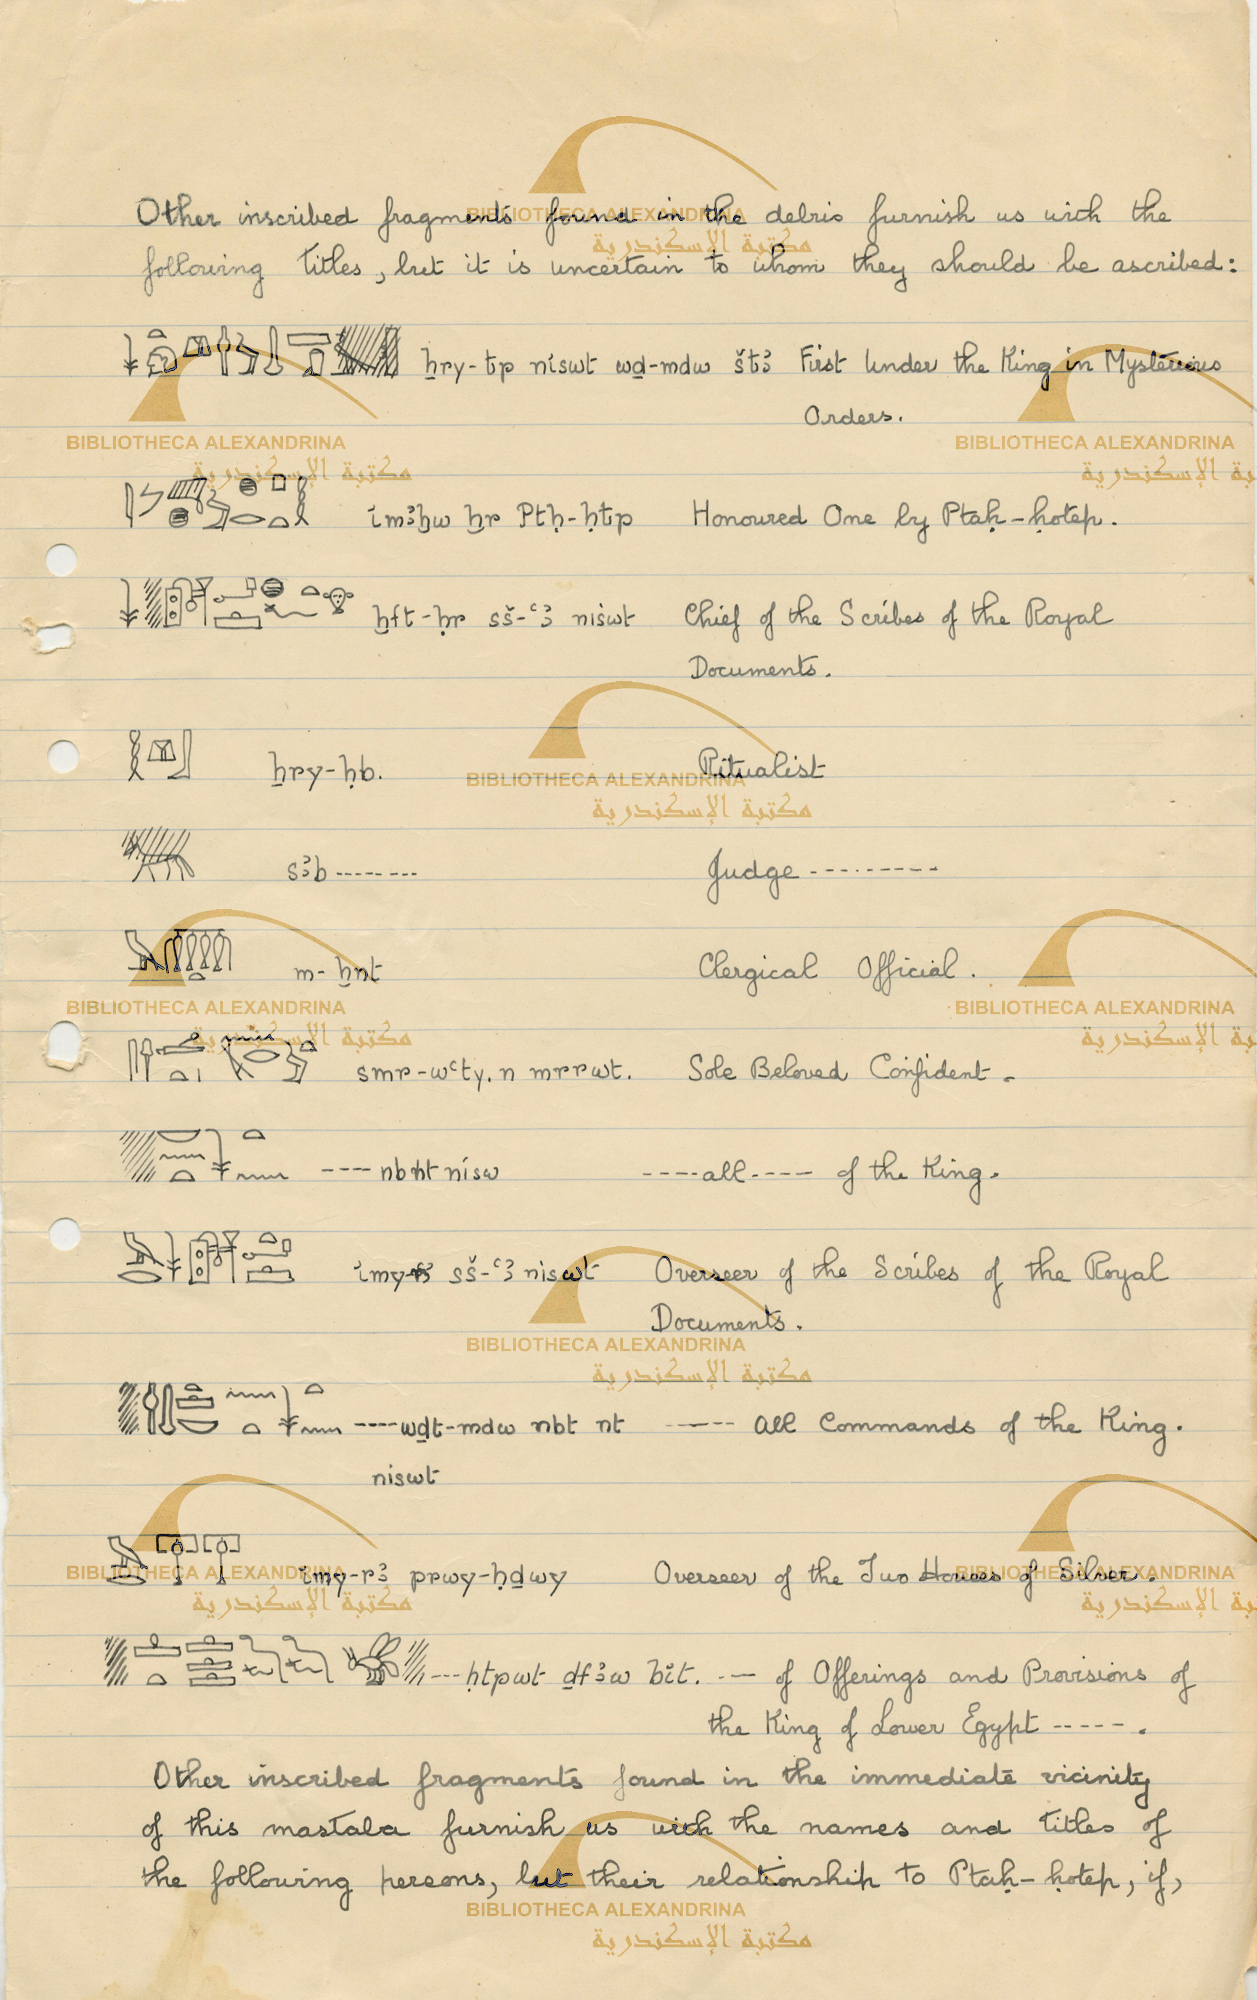 Other inscribed fragments found in the debris furnish us with the
following titles, but it is uncertain to whom they should be ascribed:
ẖry-tp níswt wḏ-mdw štꜣ First Under the King in Mysterious
Orders.
ímꜣḫw ẖr Ptḥ-ḥtp Honoured One by Ptaḥ-ḥotep.
ḫft-ḥr sš-ꜥꜣ níswt Chief of the Scribes of the Royal
Documents.
ẖry-ḥb. Ritualist
sꜣb -------- Judge ---------
m-ḫnt Clergical Official.
smr-wꜥty. n mrrwt. Sole Beloved Confident.
---- nbnt nísw ----all---- of the King.
ímy-rꜣ sš-ꜥꜣ niswt Overseer of the Scribes of the Royal
Documents.
----wḏt-mdw nbt nt ----- all Commands of the King.
niswt
ímy-rꜣ prwy-ḥḏwy Overseer of the Two Houses of Silver.
---ḥtpwt ḏfꜣw bít. --- of Offerings and Provisions of
the King of Lower Egypt -----.
Other inscribed fragments found in the immediate vicinity
of this mastaba furnish us with the names and titles of
the following persons, but their relationship to Ptaḥ-ḥotep, if,
BIBLIOTHECA ALEXANDRINA
مكتبة الإسكندرية